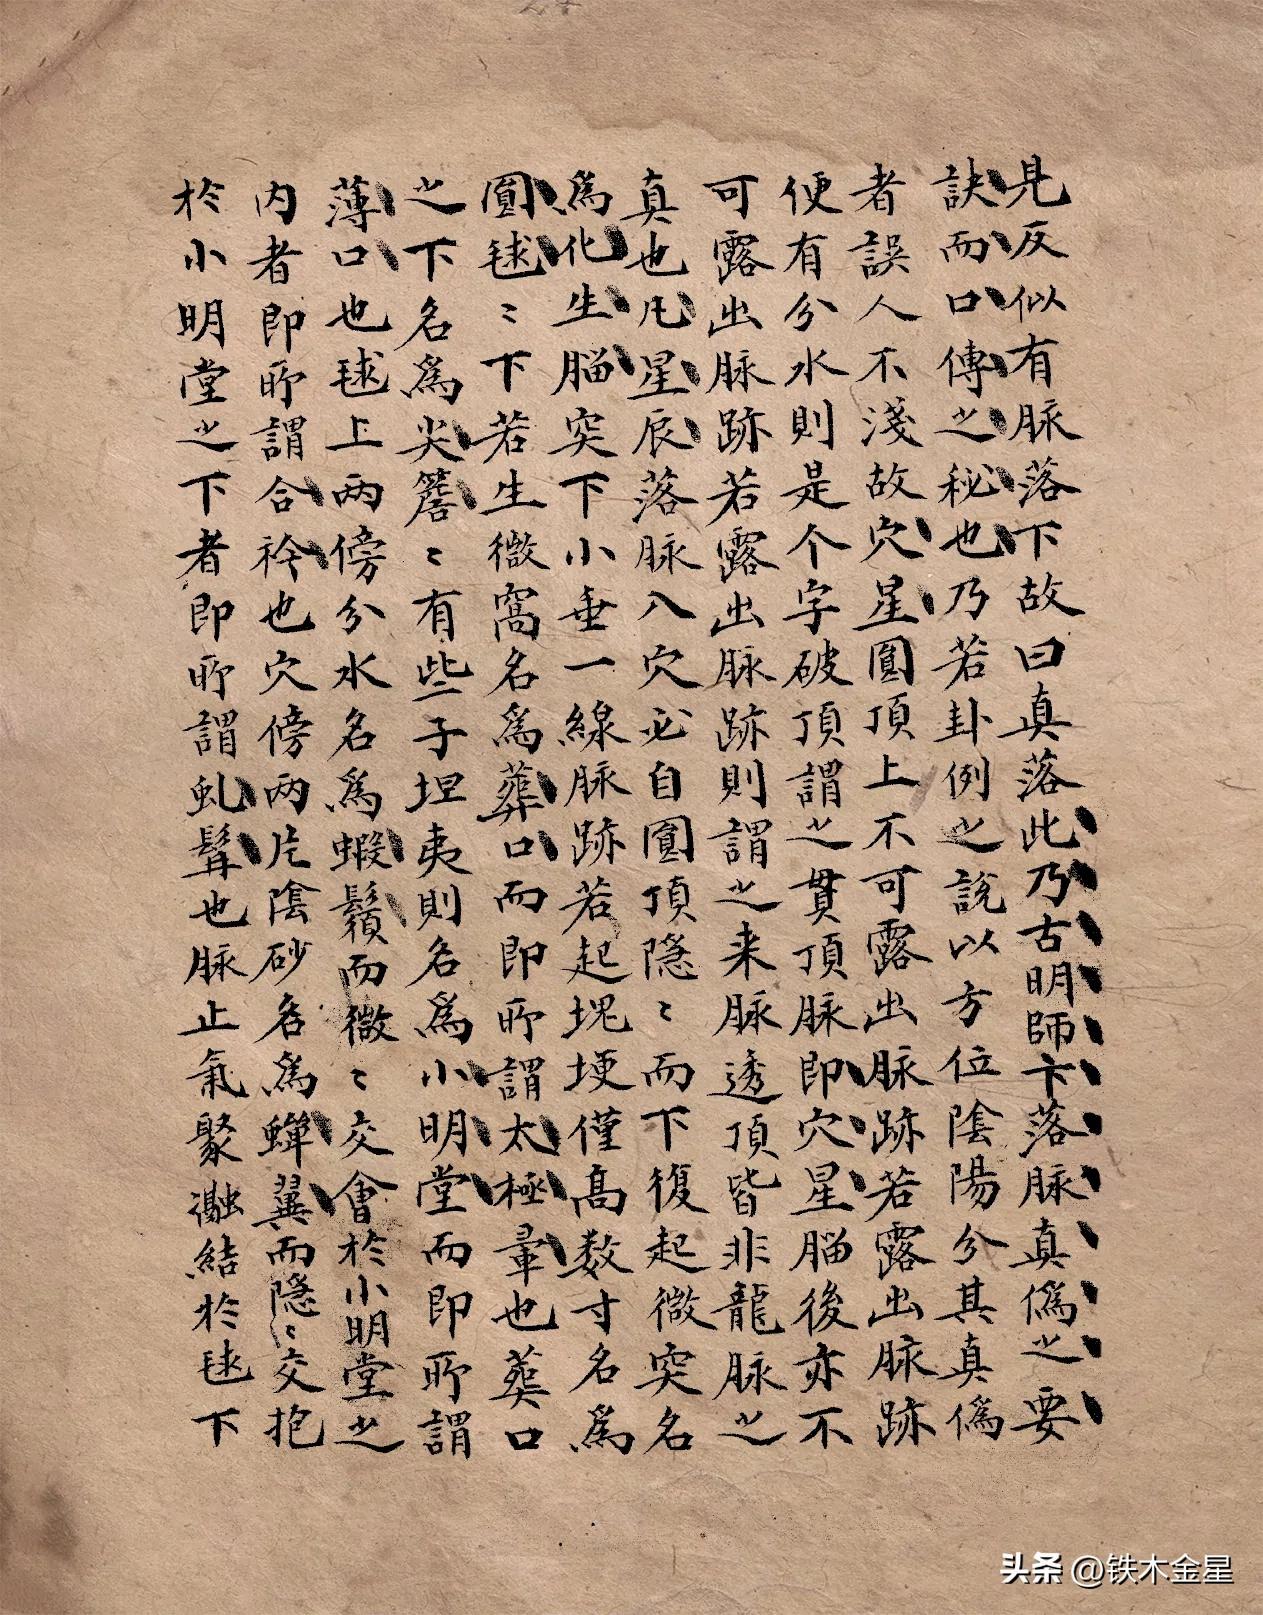 見反似有脉落下故曰真落此乃古明師卞落脉真僞之要
訣而口傳之秘也乃若卦例之說以方位陰陽分其真僞
者誤人不淺故穴星圓頂上不可露出脉跡若露出脉跡
便有分水則是个字破頂謂之貫頂脉即穴星腦後亦不
可露出脉跡若露出脉跡則謂之来脉透頂皆非龍脉之
真也凡星辰落脉入穴必自圓頂隐〻而下復起微突名
為化生腦突下小垂一線脉跡若起塊埂僅高数寸名為
圓毬〻下若生微窩名為葬口而即所謂太極暈也葬口
之下名為尖簷〻有些子坦夷則名為小明堂而即所謂
薄口也毬上两傍分水名為蝦鬚而微〻交會於小明堂之
内者即所謂合衿也穴傍两片陰砂名為蟬翼而隐〻交抱
於小明堂之下者即所謂虬髯也脉止氣聚瀜結於毬下
头条 @铁木金星